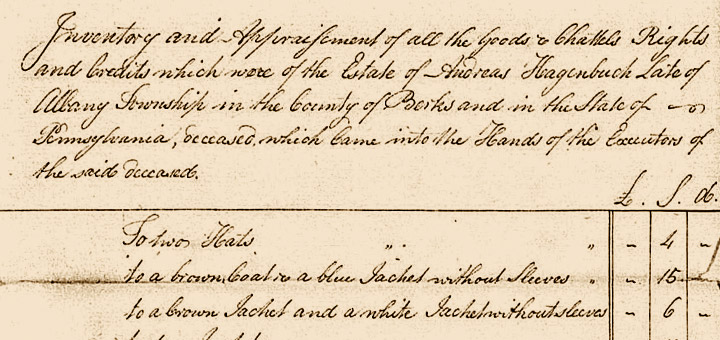 Inventory and Appraisement of all the Goods & Chattels Rights
and Credits which were of the Estate of Andreas Hagenbuch Late of
Albany Township in the County of Berks and in the State of
Pennsylvania, deceased, which Came into the Hands of the Executors of
the said deceased.
£. S. d.
To two Hats " " - 4 -
to a brown Coat & a blue Jacket without Sleeves " - 15 -
to a brown Jacket and a white Jacket without sleeves - 6 -